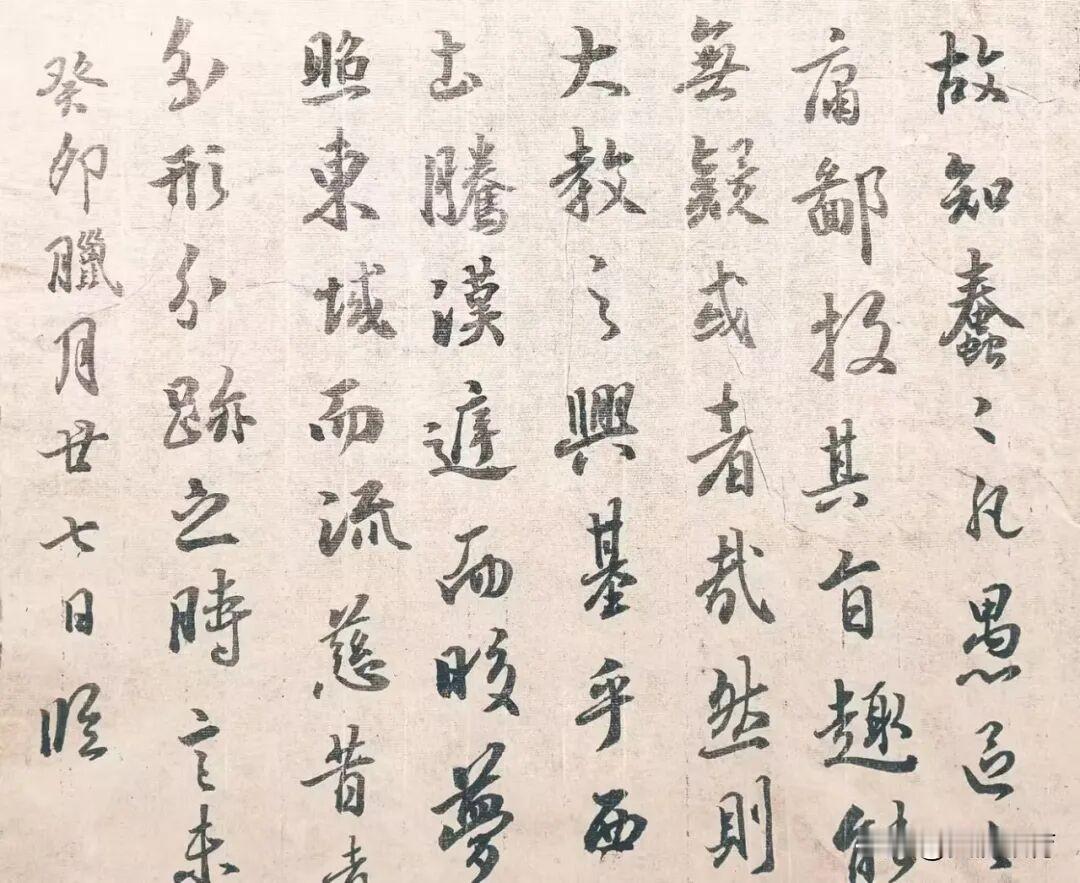 故知蠢〻凡愚區〻
庸鄙投其旨趣能
無疑或者哉然則
大教之興基乎西
土騰漢庭而晈夢
照東域而流慈昔者
分形分跡之時言未
癸卯臘月廿七日臨